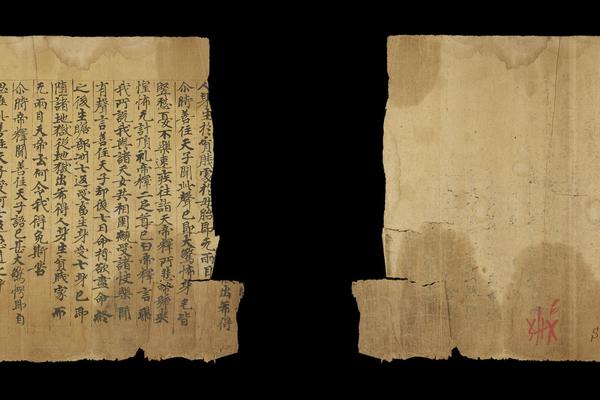 出希得
人身生於貧賤處於母胎即无兩目
尒時善住天子聞此聲已即大驚怖身毛皆
竪愁憂不樂速疾往詣天帝釋所悲啼號哭
惶怖无計頂礼帝釋二足尊已白帝釋言聽
我所說我與諸天女共相圍繞受諸快樂聞
有聲言善住天子却後七日命將欲盡命終
之後生贍部洲七返受畜生身受七身已即
墮諸地獄從地獄出希得人身生貧賤家而
无兩目天帝云何令我得免斯苦
尒時帝釋聞善住天子語已甚大驚愕即自